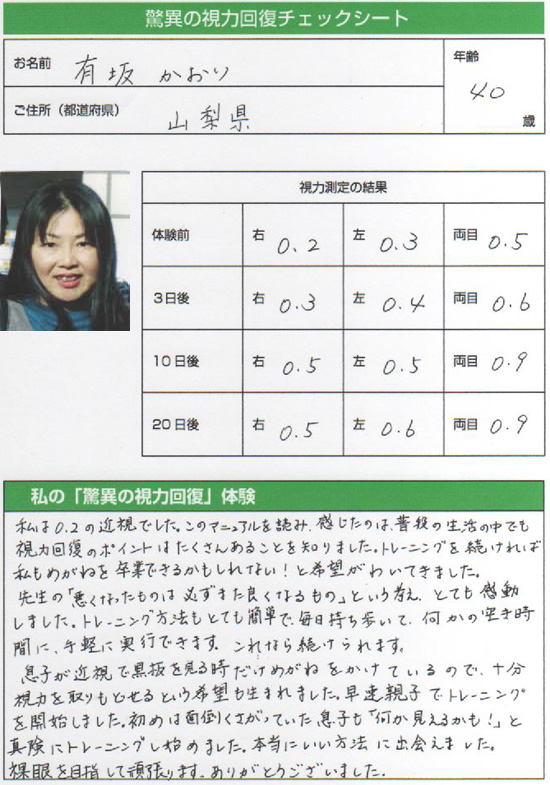 驚異の視力回復チェックシート
お名前 有坂 かおり
年齢 40 歳
ご住所（都道府県） 山梨県
視力測定の結果
体験前 右 0.2 左 0.3 両目 0.5
3日後 右 0.3 左 0.4 両目 0.6
10日後 右 0.5 左 0.5 両目 0.9
20日後 右 0.5 左 0.6 両目 0.9
私の「驚異の視力回復」体験
私は0.2の近視でした。このマニュアルを読み、感じたのは、普段の生活の中でも
視力回復のポイントはたくさんあることを知りました。トレーニングを続ければ
私もめがねを卒業できるかもしれない！と希望がわいてきました。
先生の「悪くなったものは必ずまた良くなるもの」という考え、とても感動
しました。トレーニング方法もとても簡単で、毎日持ち歩いて、何かの空き時
間に、手軽に実行できます。これなら続けられます。
息子が近視で黒板を見る時だけめがねをかけているので、十分
視力を取りもどせるという希望も生まれました。早速親子でトレーニング
を開始しました。初めは面倒くさがっていた息子も「何か見えるかも！」と
真険にトレーニングし始めました。本当にいい方法に出会えました。
裸眼を目指して頑張ります。ありがとうございました。